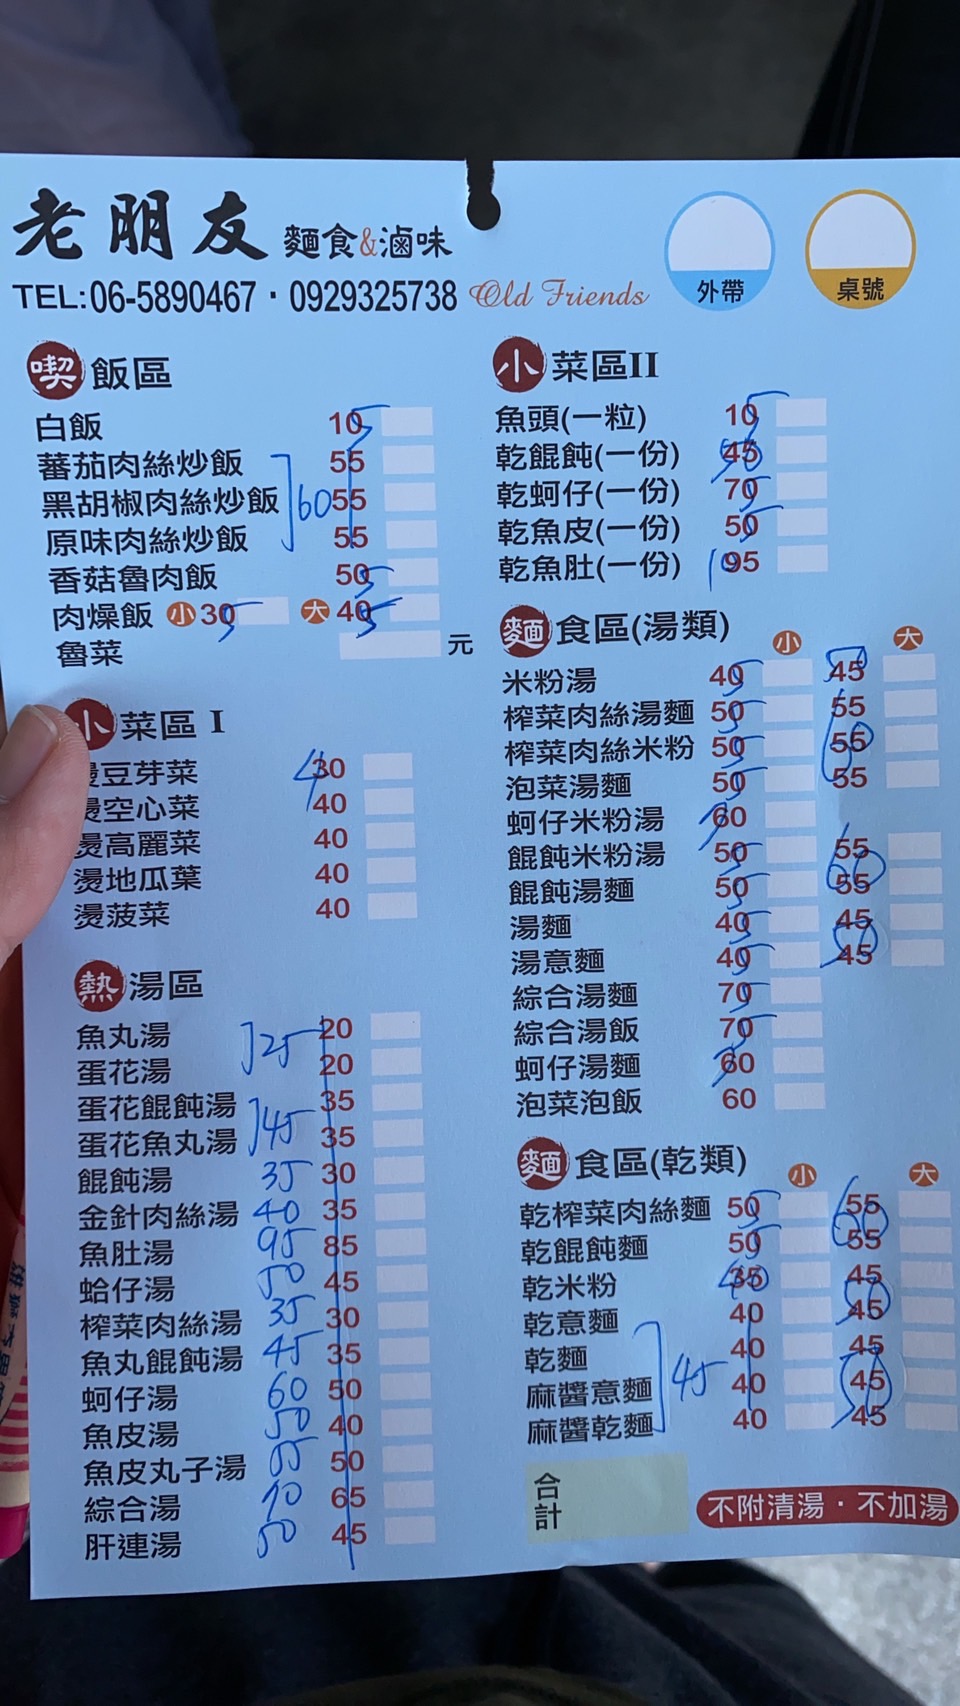 老朋友 麵食&滷味
TEL:06-5890467 · 0929325738 Old Friends
外帶
桌號
喫飯區
白飯 10 5
蕃茄肉絲炒飯 55
黑胡椒肉絲炒飯 60 55
原味肉絲炒飯 55
香菇魯肉飯 50 5
肉燥飯 小 30 5 大 40 5
魯菜 元
小菜區 I
燙豆芽菜 4 30
燙空心菜 40
燙高麗菜 40
燙地瓜葉 40
燙菠菜 40
熱湯區
魚丸湯 25 20
蛋花湯 20
蛋花餛飩湯 45 35
蛋花魚丸湯 35
餛飩湯 35 30
金針肉絲湯 40 35
魚肚湯 95 85
蛤仔湯 50 45
榨菜肉絲湯 35 30
魚丸餛飩湯 45 35
蚵仔湯 60 50
魚皮湯 50 40
魚皮丸子湯 50
綜合湯 70 65
肝連湯 50 45
小菜區II
魚頭(一粒) 10 5
乾餛飩(一份) 45 50
乾蚵仔(一份) 70
乾魚皮(一份) 50 5
乾魚肚(一份) 95
麵食區(湯類)
小 大
米粉湯 40 5 45 50
榨菜肉絲湯麵 50 5 55
榨菜肉絲米粉 50 5 55 60
泡菜湯麵 50 5 55
蚵仔米粉湯 60 7
餛飩米粉湯 50 5 55
餛飩湯麵 50 5 55 60
湯麵 40 5 45
湯意麵 40 5 45 50
綜合湯麵 70 5
綜合湯飯 70 5
蚵仔湯麵 60 7
泡菜泡飯 60
麵食區(乾類)
小 大
乾榨菜肉絲麵 50 5 55 60
乾餛飩麵 50 5 55
乾米粉 35 40 45
乾意麵 40 45 50
乾麵 40 45
麻醬意麵 45 40 45 50
麻醬乾麵 40 45
合計
不附清湯·不加湯